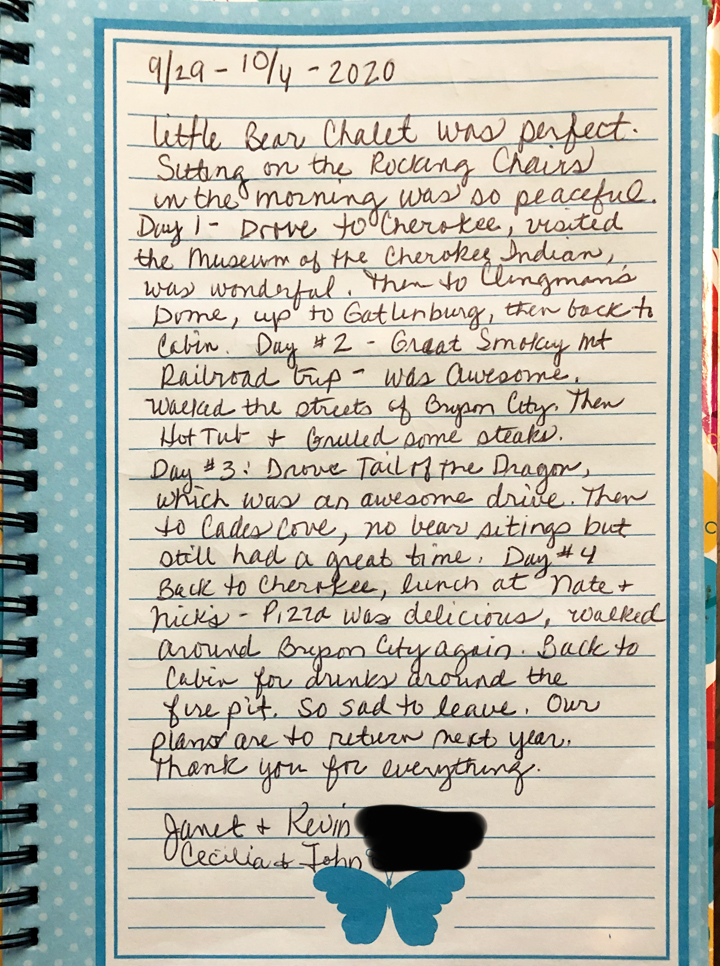 9/29 - 10/4 - 2020
Little Bear Chalet was perfect.
Sitting on the Rocking Chairs
in the morning was so peaceful.
Day 1 - Drove to Cherokee, visited
the Museum of the Cherokee Indian,
was wonderful. Then to Clingman's
Dome, up to Gatlinburg, then back to
Cabin. Day #2 - Great Smokey Mt
Railroad trip - was awesome.
Walked the streets of Bryson City. Then
Hot Tub + Grilled some steaks.
Day #3: Drove Tail of the Dragon,
which was an awesome drive. Then
to Cades Cove, no bear sitings but
still had a great time. Day #4
Back to Cherokee, lunch at Nate +
Nick's - Pizza was delicious, walked
around Bryson City again. Back to
Cabin for drinks around the
fire pit. So sad to leave. Our
plans are to return next year.
Thank you for everything.
Janet + Kevin
Cecilia + John